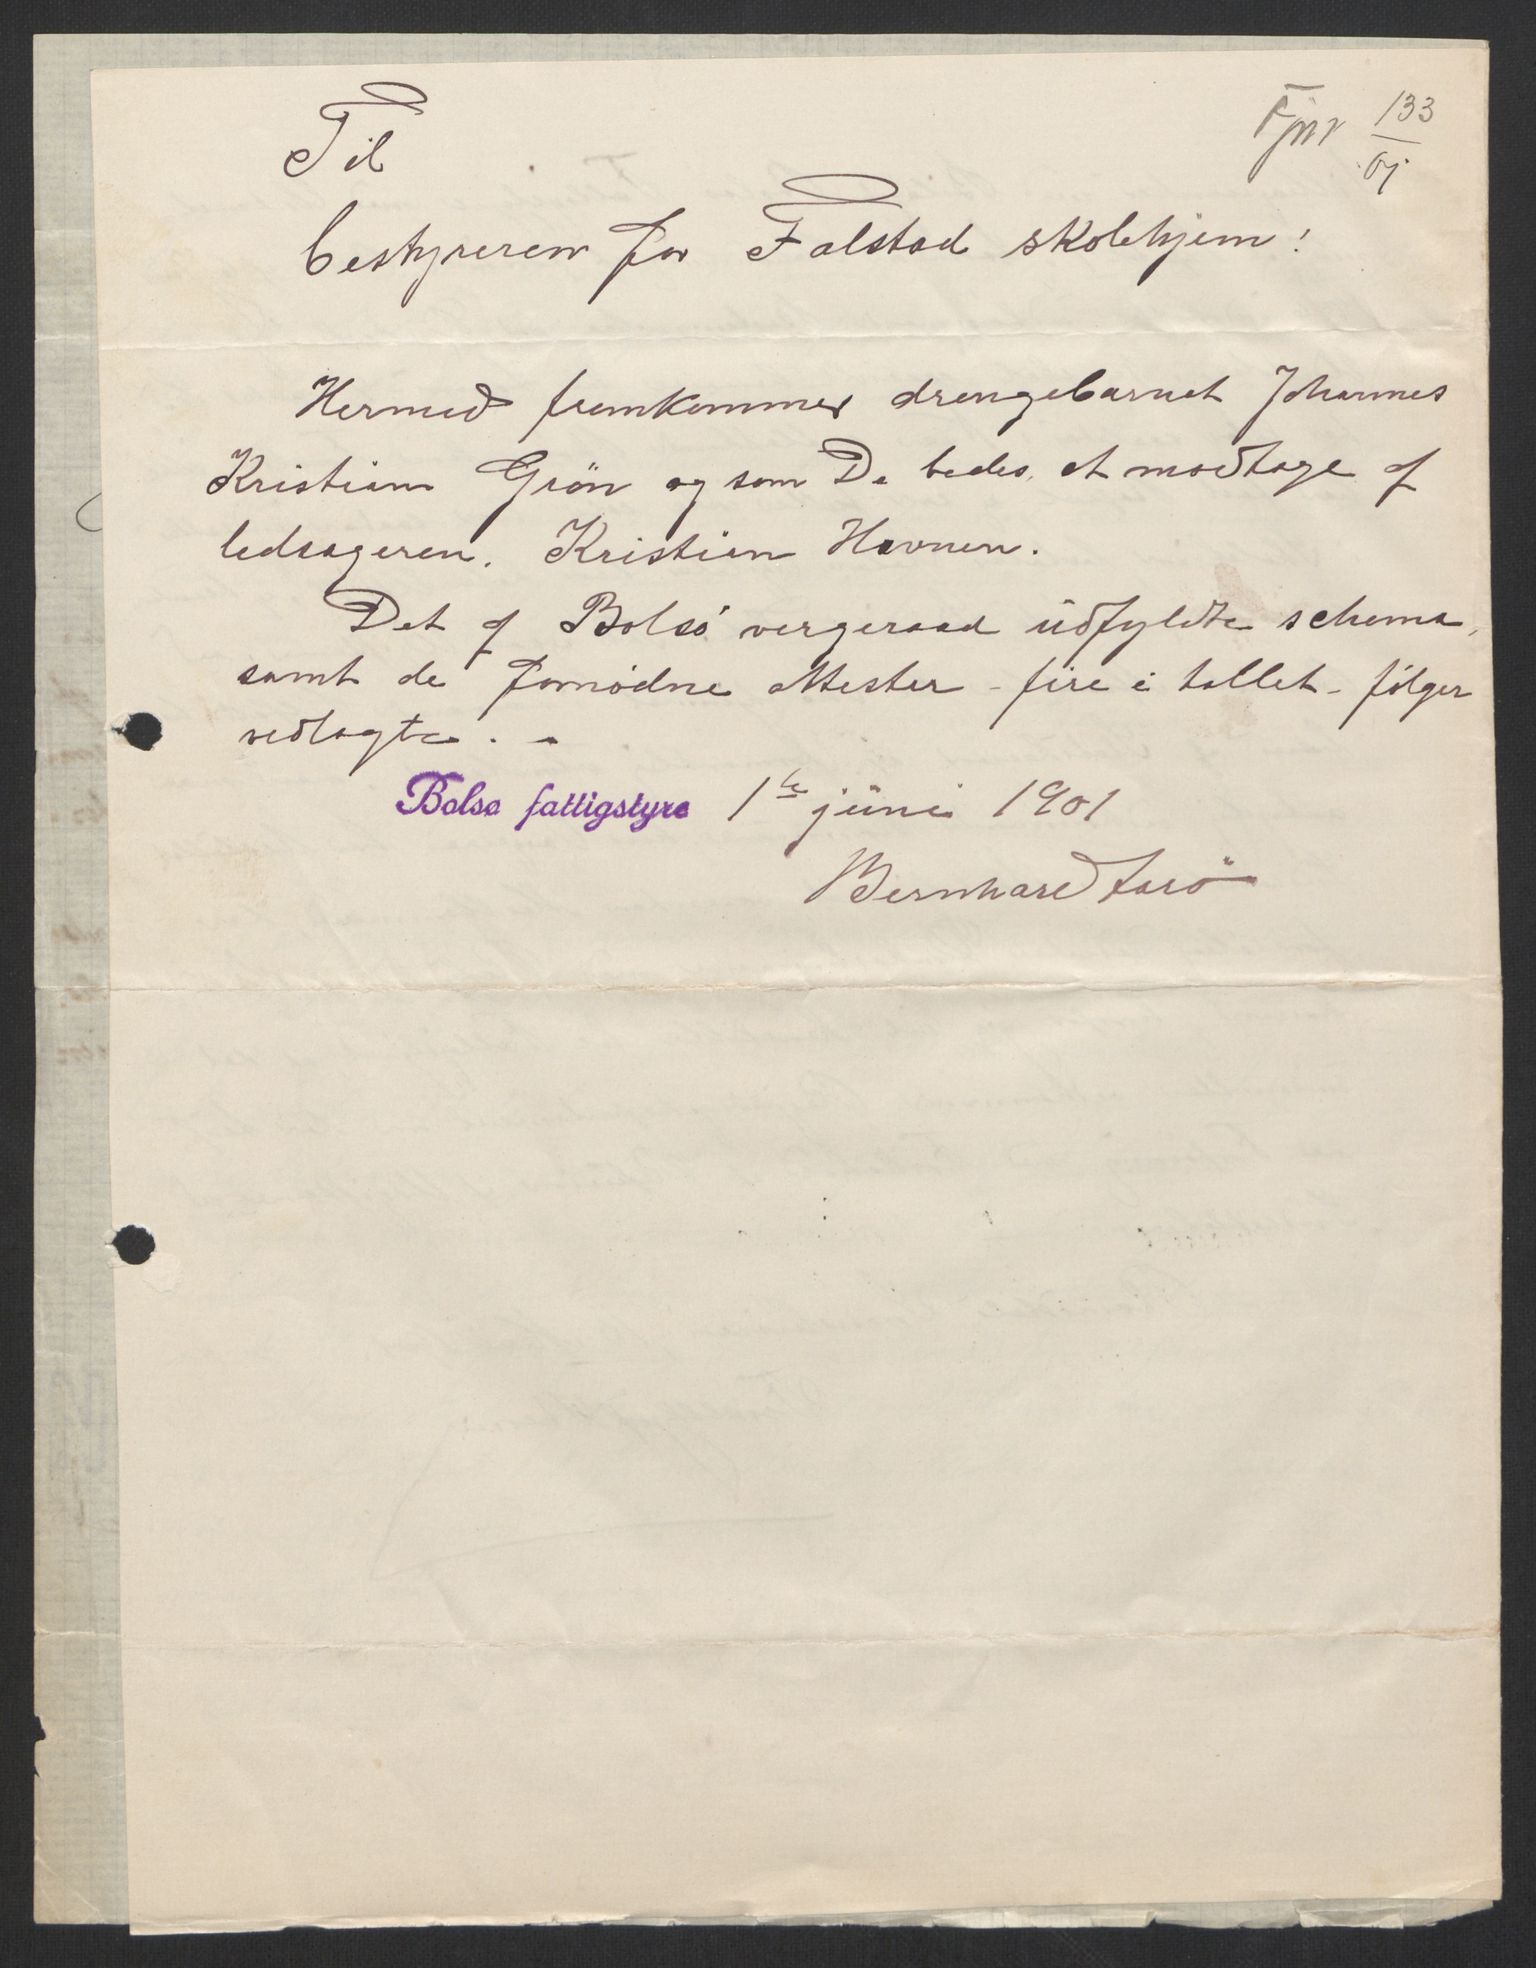 Fjnr 133/01
Til
bestyreren for Falstad skolehjem!
Hermed fremkommer drengebarnet Johannes
Kristian Grön og som De bedes at modtage af
ledsageren. Kristian Havnen.
Det af Bolsö vergeraad udfyldte schema,
samt de fornødne attester - fire i tallet - følger
vedlagte. -
Bolsø fattigstyre 1te juni 1901
Bernhard